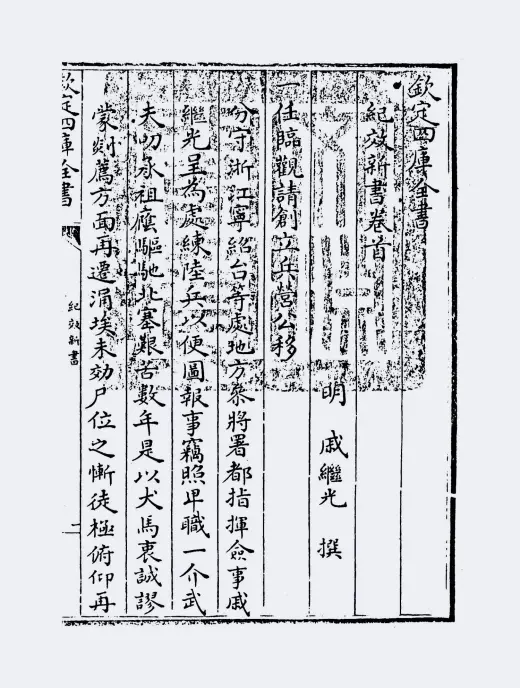 欽定四庫全書
紀效新書卷首
明 戚繼光 撰
一任臨觀請創立兵營公移
分守浙江寧紹台等處地方叅將署都指揮僉事戚
繼光呈為處練陸兵以便圖報事竊照卑職一介武
夫叨承祖廕驅馳北塞艱苦數年是以犬馬衷誠謬
蒙剡薦方面再遷涓埃未効尸位之慚徒極俯仰再
欽定四庫全書
紀效新書
一